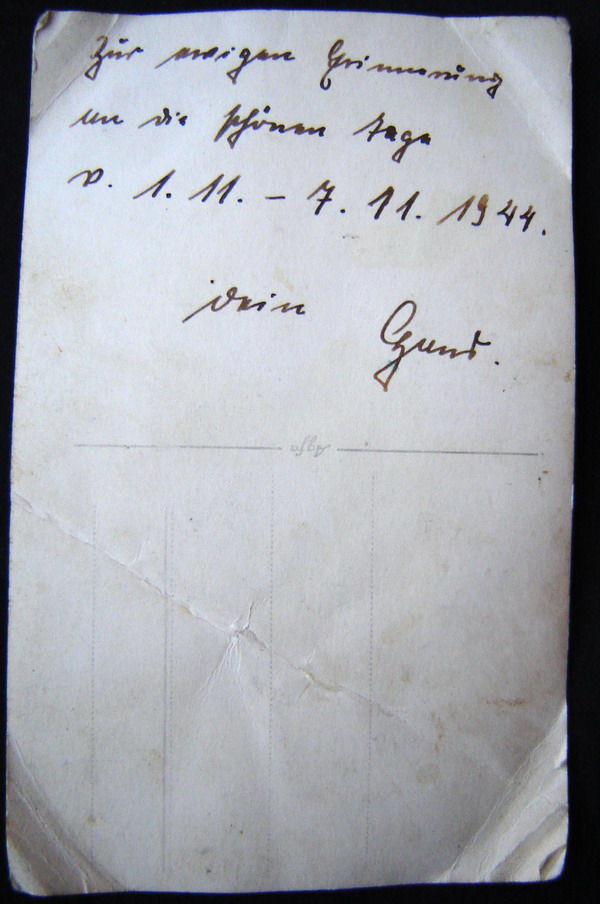 Zur ewigen Erinnerung
an die schönen Tage
v. 1. 11. – 7. 11. 1944.
Dein Hans.
Agfa